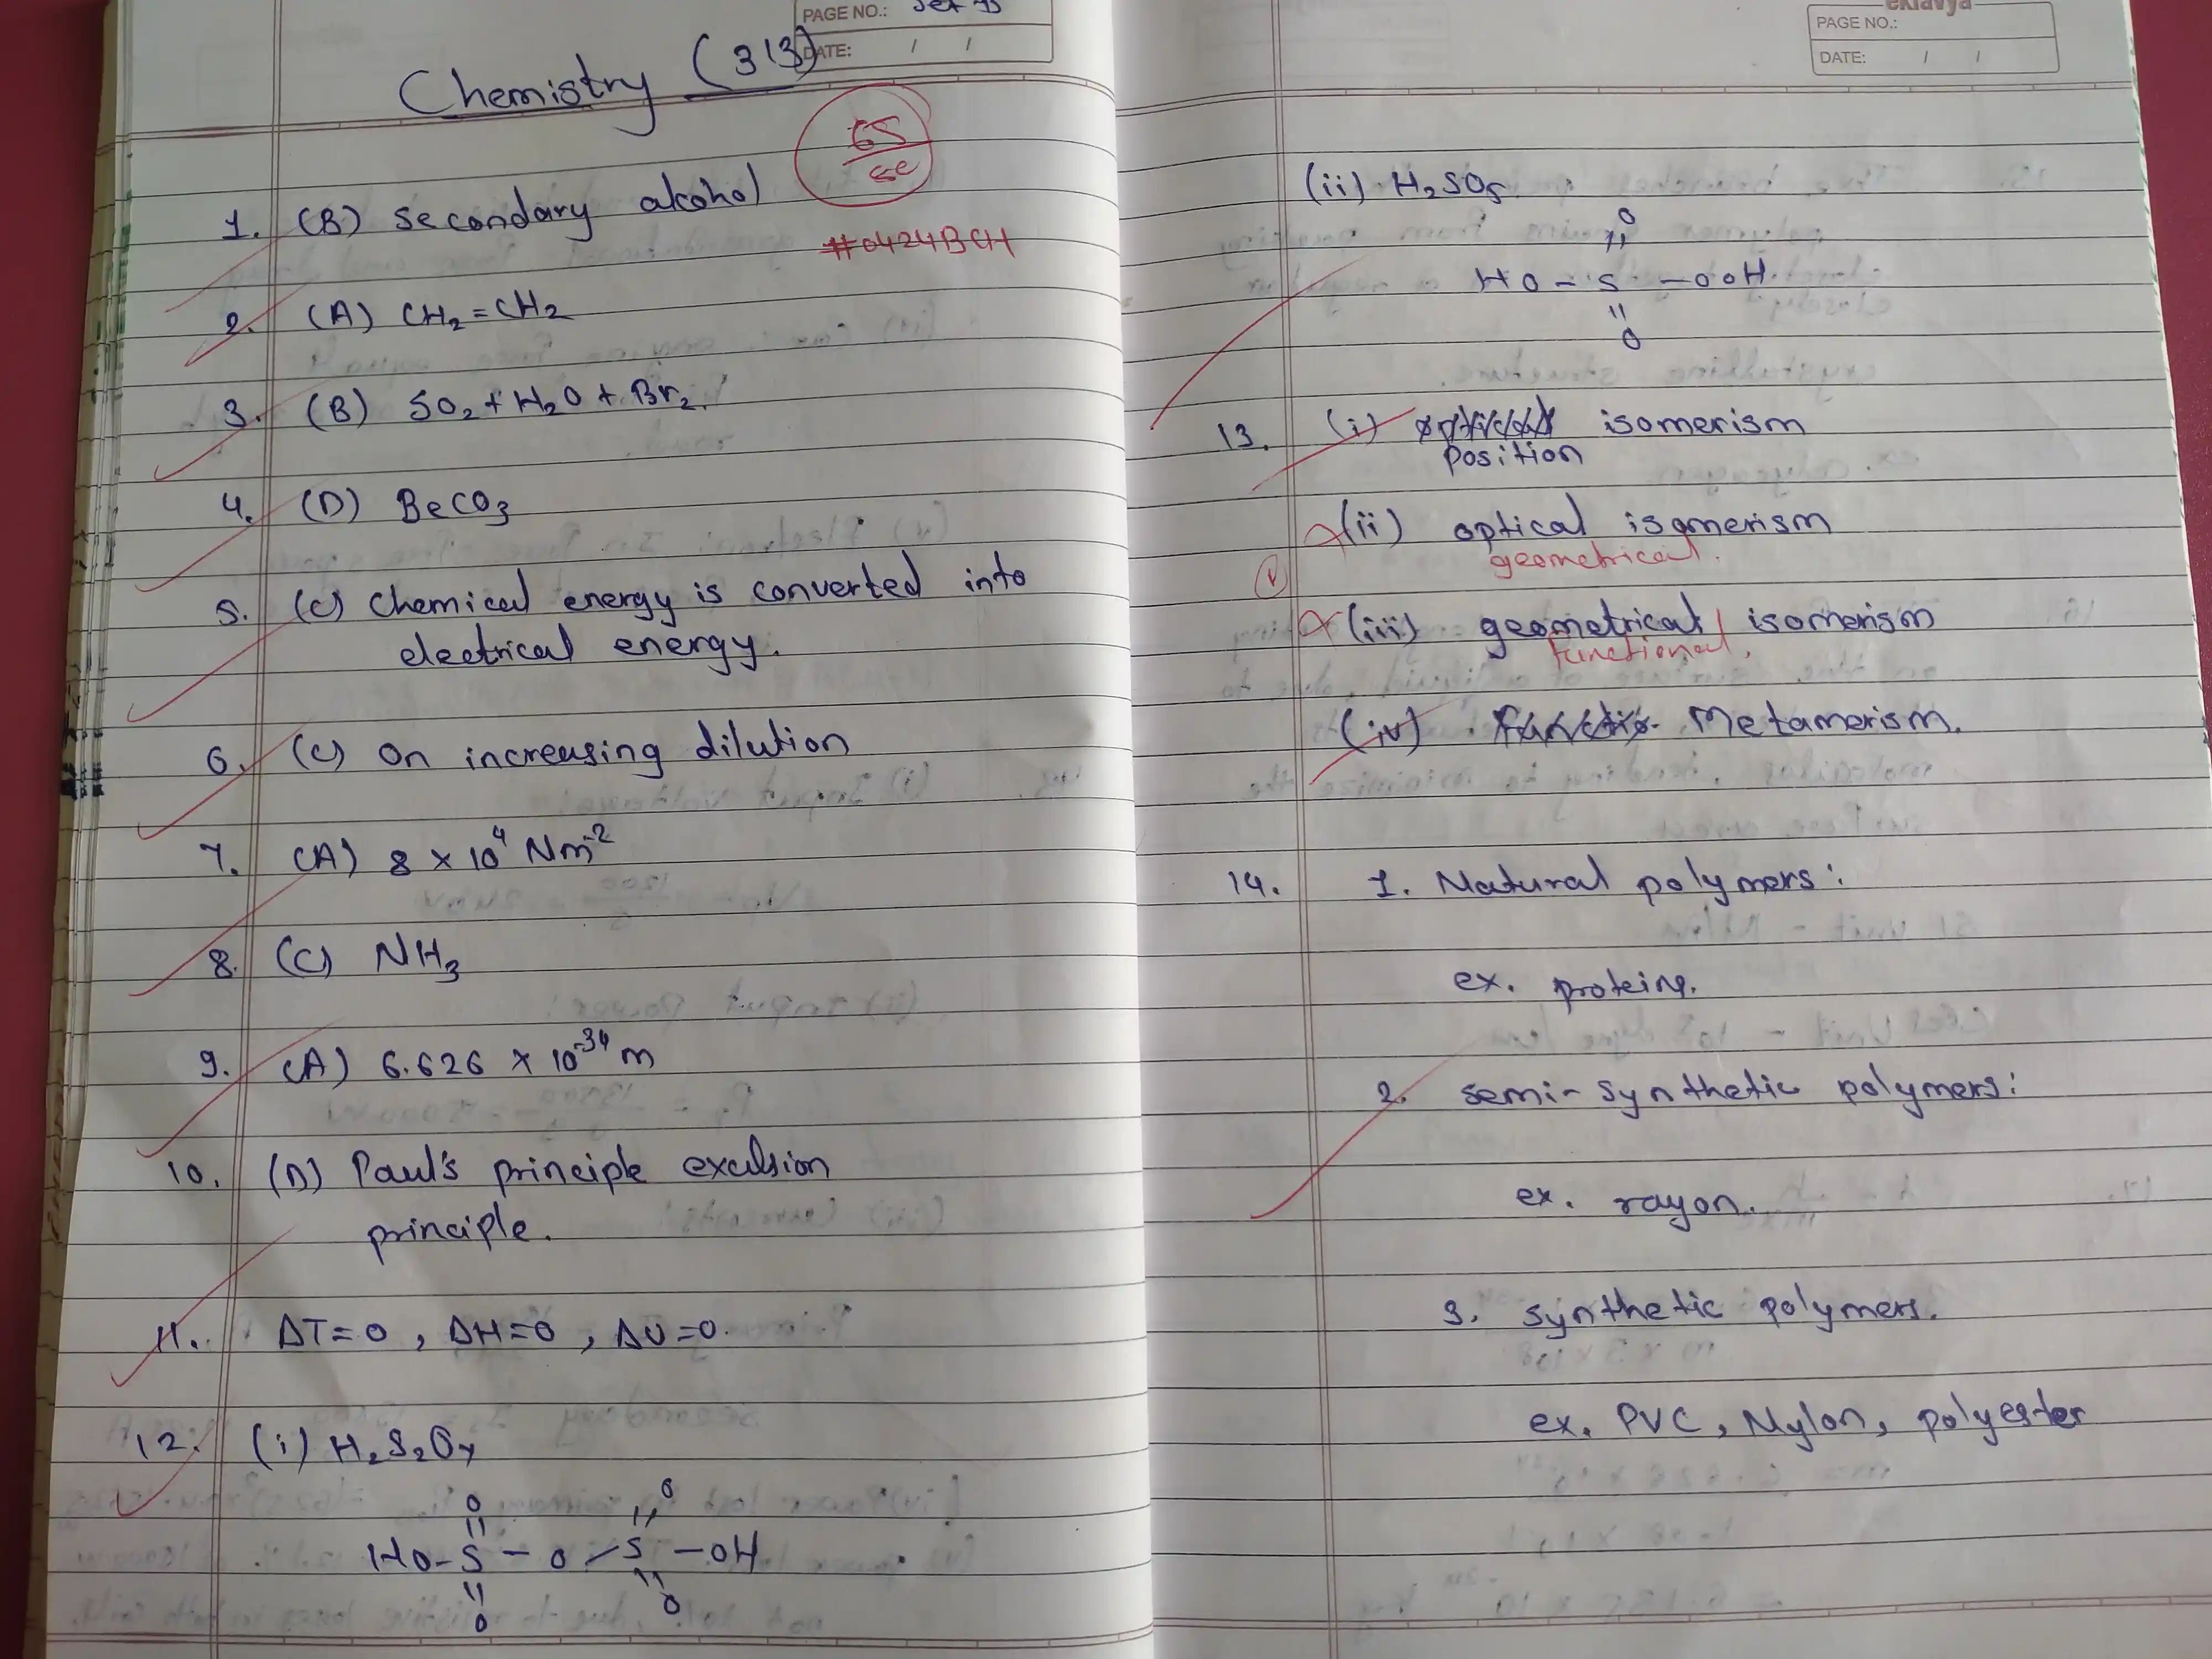 PAGE NO.:
DATE: / /
Chemistry (313)
65
#0424BCH
1. (B) secondary alcohol
2. (A) CH₂=CH₂
3. (B) SO₂+H₂O+Br₂.
4. (D) BeCO₃
5. (C) Chemical energy is converted into
electrical energy.
6. (C) On increasing dilution
7. (A) 8 × 10⁴ Nm⁻²
8. (C) NH₃
9. (A) 6.626 × 10⁻³⁴ m
10. (D) Paul's principle exculsion
principle.
11. ΔT=0, ΔH=0, ΔU=0.
12. (i) H₂S₂O₇
O O
HO-S-O-S-OH
O O
eklavya
PAGE NO.:
DATE: / /
(ii) H₂SO₅
O
HO-S-OOH
O
13. (i) isomerism
Position
(ii) optical isomerism
geometrical.
(iii) geometrical isomerism
functional.
(iv) Metamerism.
14. 1. Natural polymers:
ex. proteins.
2. semi-synthetic polymers:
ex. rayon.
3. synthetic polymers.
ex. PVC, Nylon, polyester